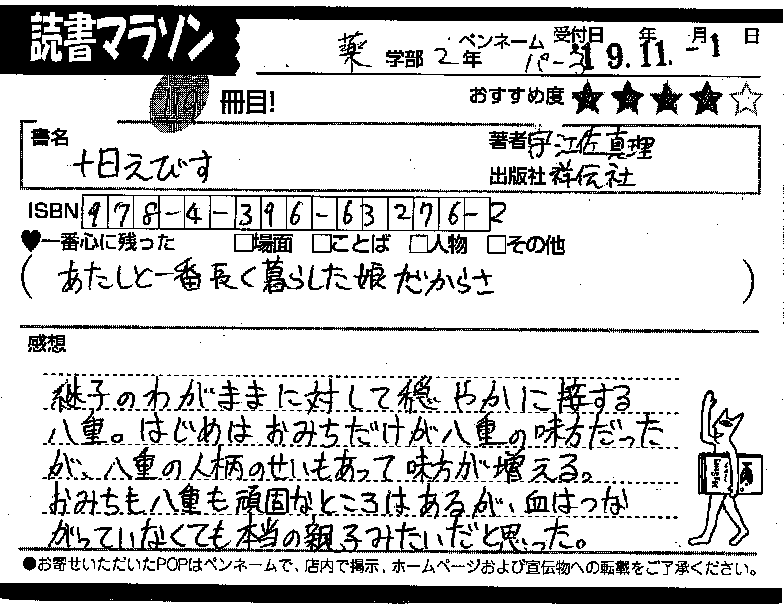 読書マラソン
薬 学部 2年 ペンネーム パーユ 受付日 '19.11.-1 年 月 日
冊目! おすすめ度 ★★★★☆
書名 十日えびす
著者 宇江佐真理
出版社 祥伝社
ISBN 978-4-396-63276-2
♥一番心に残った □場面 □ことば □人物 □その他
(あたしと一番長く暮らした娘だからさ)
感想
継子のわがままに対して穏やかに接する
八重。はじめはおみちだけが八重の味方だった
が、八重の人柄のせいもあって味方が増える。
おみちも八重も頑固なところはあるが、血はつな
がっていなくても本当の親子みたいだと思った。
●お寄せいただいたPOPはペンネームで、店内で掲示、ホームページおよび宣伝物への転載をご了承ください。